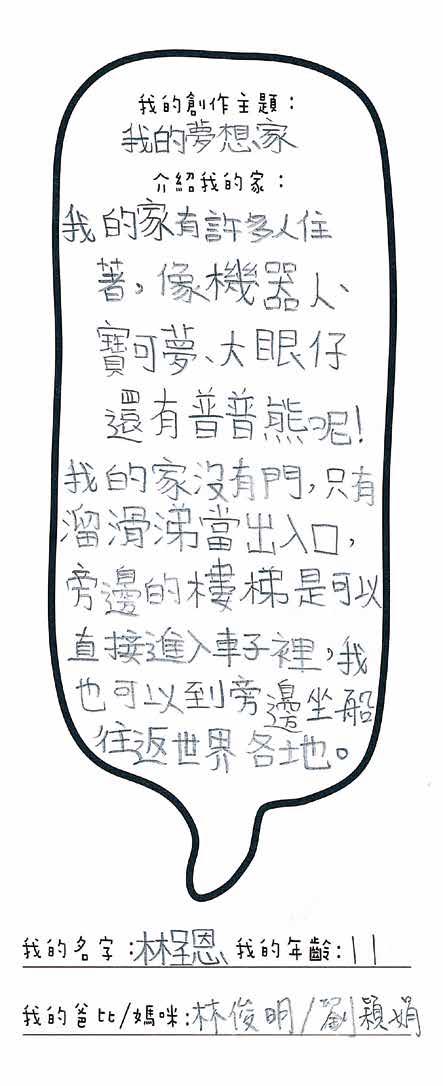 我的創作主題：
我的夢想家
介紹我的家：
我的家有許多人住
著，像機器人、
寶可夢、大眼仔
還有普普熊呢！
我的家沒有門，只有
溜滑涕當出入口，
旁邊的樓梯是可以
直接進入車子裡，我
也可以到旁邊坐船
往返世界各地。
我的名字：林珵恩、我的年齡：11
我的爸比/媽咪：林俊明/劉穎娟